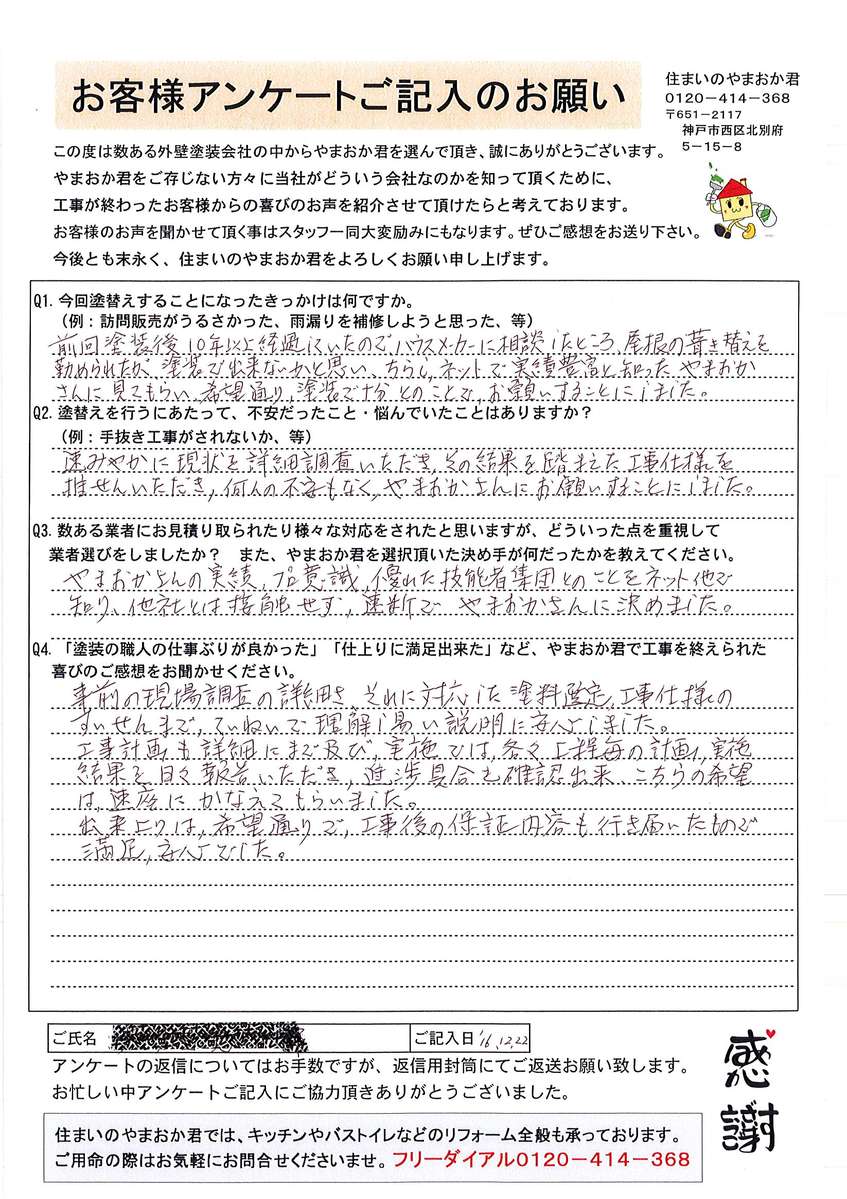 お客様アンケートご記入のお願い
住まいのやまおか君
0120－414－368
〒651－2117
神戸市西区北別府
5－15－8
この度は数ある外壁塗装会社の中からやまおか君を選んで頂き、誠にありがとうございます。
やまおか君をご存じない方々に当社がどういう会社なのかを知って頂くために、
工事が終わったお客様からの喜びのお声を紹介させて頂けたらと考えております。
お客様のお声を聞かせて頂く事はスタッフ一同大変励みにもなります。ぜひご感想をお送り下さい。
今後とも末永く、住まいのやまおか君をよろしくお願い申し上げます。
Q1. 今回塗替えすることになったきっかけは何ですか。
（例：訪問販売がうるさかった、雨漏りを補修しようと思った、等）
前回塗装後10年以上経過していたのでハウスメーカーに相談したところ、屋根の葺き替えを
勧められたが、塗装で出来ないかと思い、ネットで実績豊富と知ったやまおか
さんに見てもらい、希望通り、塗装で十分とのことで、お願いすることにしました。
Q2. 塗替えを行うにあたって、不安だったこと・悩んでいたことはありますか？
（例：手抜き工事がされないか、等）
速みやかに現状を詳細調査いただき、その結果を踏まえた工事仕様を
推せんいただき、何人の不安もなく、やまおかさんにお願いすることにしました。
Q3. 数ある業者にお見積り取られたり様々な対応をされたと思いますが、どういった点を重視して
業者選びをしましたか？　また、やまおか君を選択頂いた決め手が何だったかを教えてください。
やまおかさんの実績、プロ意識、優れた技能者集団とのことをネット他で
知り、他社とは接触せず、速断でやまおかさんに決めました。
Q4. 「塗装の職人の仕事ぶりが良かった」「仕上りに満足出来た」など、やまおか君で工事を終えられた
喜びのご感想をお聞かせください。
事前の現場調査の詳細さ、それに対応した塗料選定、工事仕様の
すいせんまで、ていねいで理解し易い説明に安心しました。
工事計画も詳細にまで及び、実施では、各々工程毎の計画、実施
結果を日々報告いただき、進渉具合も確認出来、こちらの希望
は、速座にかなえてもらいました。
出来上りは、希望通りで、工事後の保証内容も行き届いたもので
満足、安心でした。
ご氏名
ご記入日 '16.12.22
アンケートの返信についてはお手数ですが、返信用封筒にてご返送お願い致します。
お忙しい中アンケートご記入にご協力頂きありがとうございました。
感謝
住まいのやまおか君では、キッチンやバストイレなどのリフォーム全般も承っております。
ご用命の際はお気軽にお問合せくださいませ。フリーダイアル0120－414－368